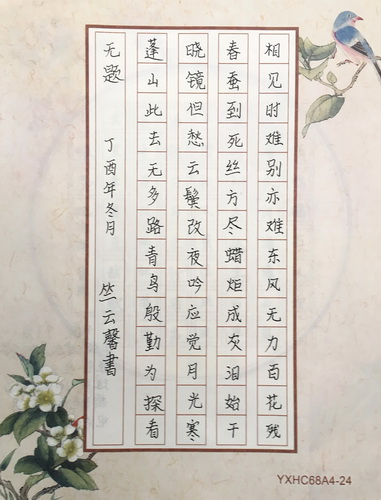 相见时难别亦难东风无力百花残
春蚕到死丝方尽蜡炬成灰泪始干
晓镜但愁云鬓改夜吟应觉月光寒
蓬山此去无多路青鸟殷勤为探看
无题 丁酉年冬月 竺云馨書
YXHC68A4-24